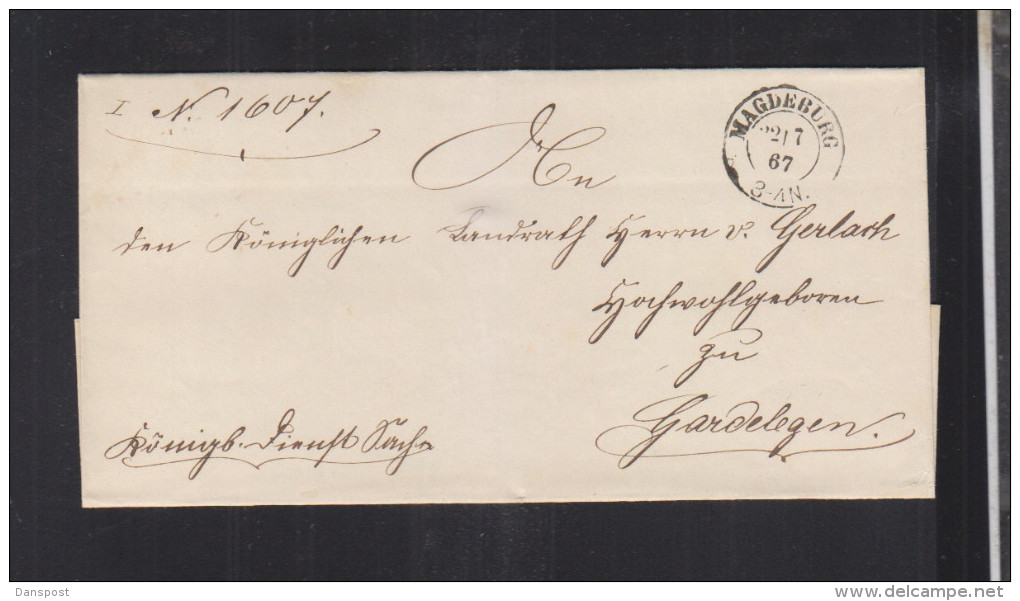 I N. 1607.
MAGDEBURG
22 7
67
3-4N.
An
den Königlichen Landrath Herrn v. Gerlach
Hochwohlgeboren
zu
Gardelegen.
Königl. Dienst Sache
Danspost
www.delcampe.net